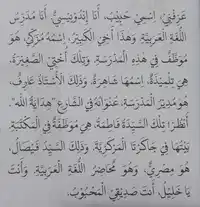 عَرَفْنِيْ، اِسْمِيْ حَبِيْبٌ، أَنَا إِنْدُوْنِيْسِيٌّ، أَنَا مُدَرِّسُ
اللُّغَةِ الْعَرَبِيَّةِ. وَهٰذَا أَخِي الْكَبِيْرُ، اِسْمُهُ مَرْزُكِيْ، هُوَ
مُوَظَّفٌ فِيْ هٰذِهِ الْمَدْرَسَةِ. وَتِلْكَ أُخْتِي الصَّغِيْرَةُ،
هِيَ تِلْمِيْذَةٌ، اِسْمُهَا شَاهِرَةُ، وَذٰلِكَ الْأُسْتَاذُ عَارِفٌ،
هُوَ مُدِيْرُ الْمَدْرَسَةِ، عُنْوَانُهُ فِي الشَّارِعِ "هِدَايَةُ اللّٰه".
أُنْظُرْ! تِلْكَ السَّيِّدَةُ فَاطِمَةُ، هِيَ مُوَظَّفَةٌ فِي الْمَكْتَبَةِ،
بَيْتُهَا فِيْ جَاكَرْتَا الْمَرْكَزِيَّةِ. وَذٰلِكَ السَّيِّدُ فَيْصَالْ،
هُوَ مِصْرِيٌّ، وَهُوَ مُحَاضِرُ اللُّغَةِ الْعَرَبِيَّةِ. وَأَنْتَ
يَا خَلِيْلُ، أَنْتَ صَدِيْقِي الْمَحْبُوْبُ.